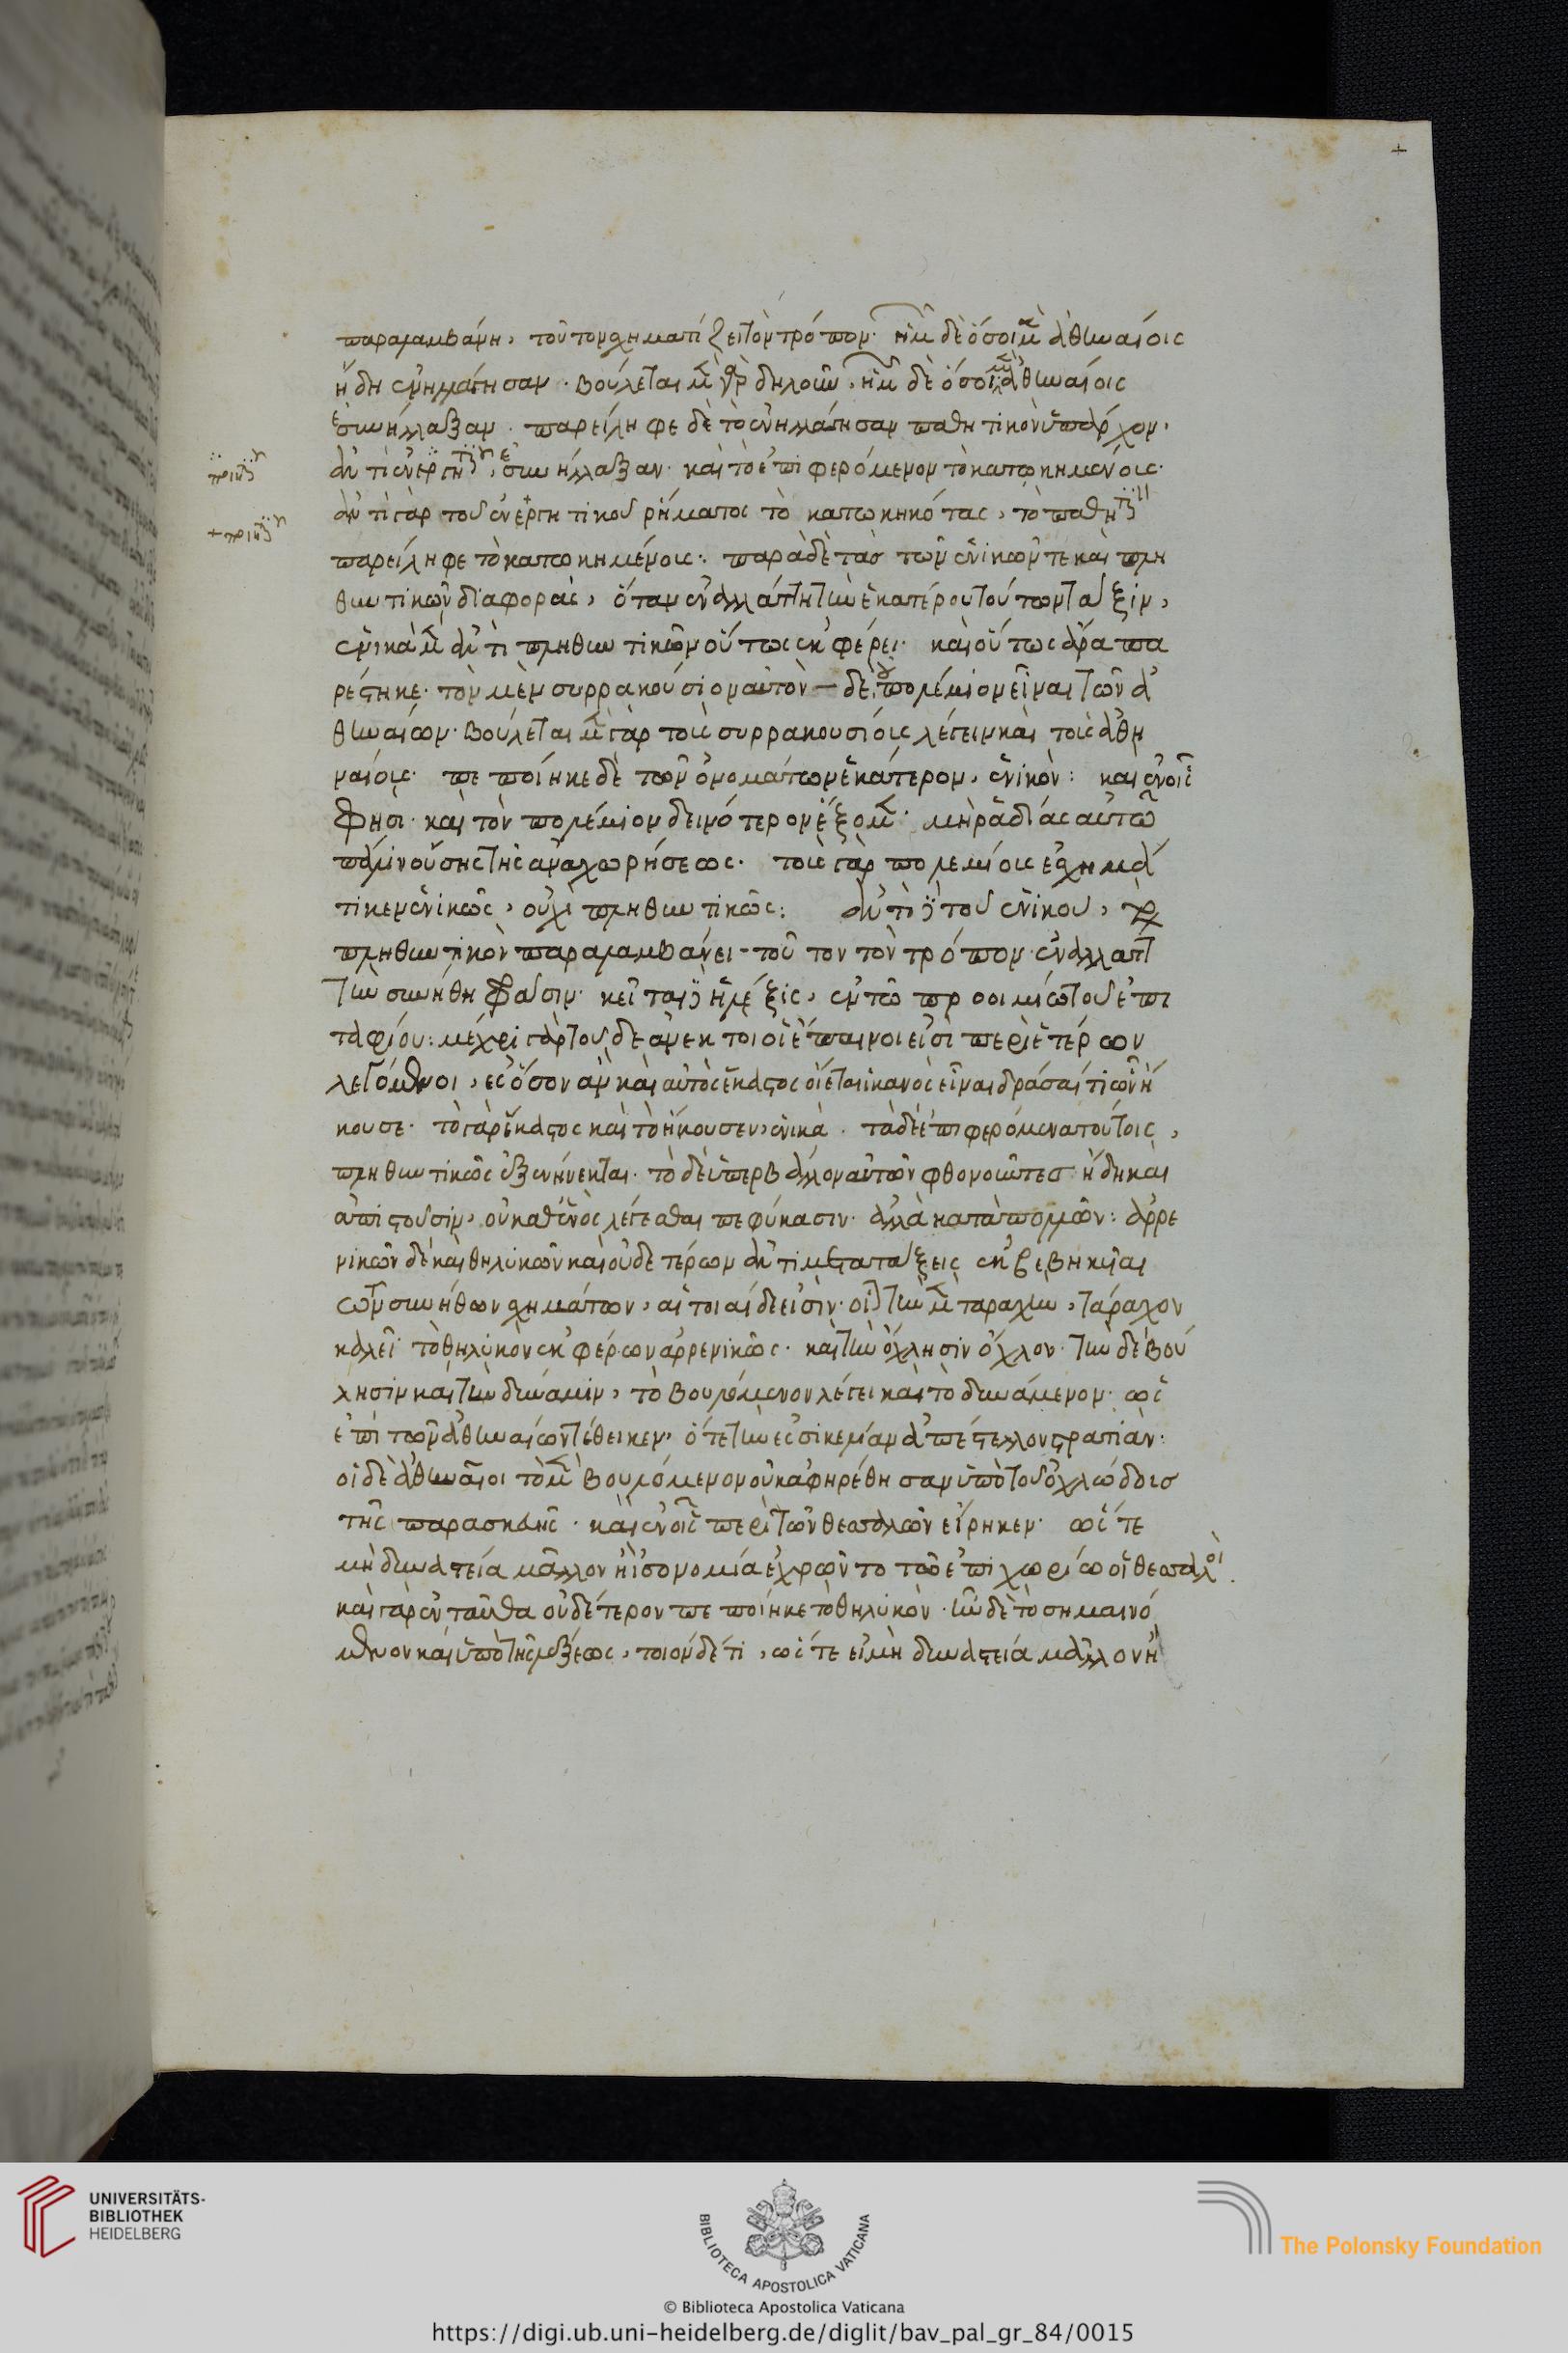 παραλαμβάνη, τοῦτον σχηματίζει τὸν τρόπον· ἡμῶν δὲ ὅσοι μὲν ἀθηναίοις
ἤδη ἐνηλλάγησαν· βούλεται μὲν γὰρ δηλοῦν, ἡμῶν δὲ ὅσοι μὲν ἀθηναίοις
ἐσυνήλλαξαν· παρείληφε δὲ τὸ ἐνηλλάγησαν παθητικὸν ὑπάρχον,
ἀντὶ ἐνεργητικοῦ, ἐσυνήλλαξαν· καὶ τὸ ἐπιφερόμενον τὸ κατῳκημένοις·
ἀντὶ γὰρ τοῦ ἐνεργητικοῦ ῥήματος τὸ κατῳκηκότας, τὸ παθητικὸν
παρείληφε τὸ κατῳκημένοις: παρὰ δὲ τὰς τῶν ἑνικῶν τε καὶ πλη
θυντικῶν διαφορὰς, ὅταν ἐναλλάττη τὴν ἑκατέρου τούτων τάξιν,
ἑνικὰ μὲν ἀντὶ πληθυντικῶν οὕτως ἐκφέρει· καὶ οὕτως ἄρα πα
ρέστηκε· τὸν μὲν συρρακούσιον αὐτὸν – δὲ πολέμιον εἶναι τῶν ἀ
θηναίων· βούλεται μὲν γὰρ τοῖς συρρακουσίοις λέγειν καὶ τοῖς ἀθη
ναίοις· πεποίηκε δὲ τῶν ὀνομάτων ἑκάτερον, ἑνικὸν: καὶ ἐν οἷς
φησι· καὶ τὸν πολέμιον δεινότερον ἕξομεν· μὴ ῥᾳδίας αὐτῶ
πάλιν οὔσης τῆς ἀναχωρήσεως· τοῖς γὰρ πολεμίοις ἐσχημά
τικεν ἑνικῶς, οὐχὶ πληθυντικῶς: ἀντὶ δὲ τοῦ ἑνικοῦ,
πληθυντικὸν παραλαμβάνει – τοῦτον τὸν τρόπον ἐναλλάττων
τὴν συνήθη φάσιν· κεῖται δὲ ἡ λέξις, ἐν τῶ προοιμίω τοῦ ἐπι
ταφίου: μέχρι γὰρ τοῦδε ἀνεκτοὶ οἱ ἔπαινοι εἰσὶ περὶ ἑτέρων
λεγόμενοι, ἐς ὅσον ἂν καὶ αὐτὸς ἕκαστος οἴεται ἱκανὸς εἶναι δρᾶσαι τι ὧν ἤ
κουσε· τὸ γὰρ ἕκαστος καὶ τὸ ἤκουσεν, ἑνικὰ· τὰ δὲ ἐπιφερόμενα τούτοις,
πληθυντικῶς ἐξενήνεκται· τὸ δὲ ὑπερβάλλον αὐτῶν φθονοῦντες ἤδη καὶ
ἀπιστοῦσιν, οὐ καθ' ἑνὸς λέγεσθαι πέφυκασιν· ἀλλὰ κατὰ πολλῶν: ἀρρε
νικῶν δὲ καὶ θηλυκῶν καὶ οὐδετέρων ἀντιμετατάξεις ἐκβεβηκυῖαι
τῶν συνήθων σχημάτων, αἱ τοιαίδε εἰσίν· οἷον τὴν μὲν ταραχὴν, τάραχον
καλεῖ τὸ θηλυκὸν ἐκφέρων ἀρρενικῶς· καὶ τὴν ὄχλησιν ὄχλον· τὴν δὲ βού
λησιν καὶ τὴν δύναμιν, τὸ βουλόμενον λέγει καὶ τὸ δυνάμενον· ὡς
ἐπὶ τῶν ἀθηναίων τέθεικεν, ὅτε τὴν ἐς σικελίαν ἀπέστελλον στρατιάν:
οἱ δὲ ἀθηναῖοι τὸ μὲν βουλόμενον οὐκ ἀφηρέθησαν ὑπὸ τοῦ ὀχλώδους
τῆς παρασκευῆς· καὶ ἐν οἷς περὶ τῶν θεσσαλῶν εἴρηκεν· ὥστε
μὴ δυναστεία μᾶλλον ἢ ἰσονομία ἐχρῶντο τῶ ἐπιχωρίω οἱ θεσσαλοὶ
καὶ γὰρ ἐνταῦθα οὐδέτερον πεποίηκε τὸ θηλυκὸν· ἦν δὲ τὸ σημαινό
μενον καὶ ὑπὸ τῆς λέξεως, τοιόνδέ τι, ὥστε εἰ μὴ δυναστεία μᾶλλον ἢ
UNIVERSITÄTS-
BIBLIOTHEK
HEIDELBERG
BIBLIOTECA APOSTOLICA VATICANA
The Polonsky Foundation
© Biblioteca Apostolica Vaticana
https://digi.ub.uni-heidelberg.de/diglit/bav_pal_gr_84/0015